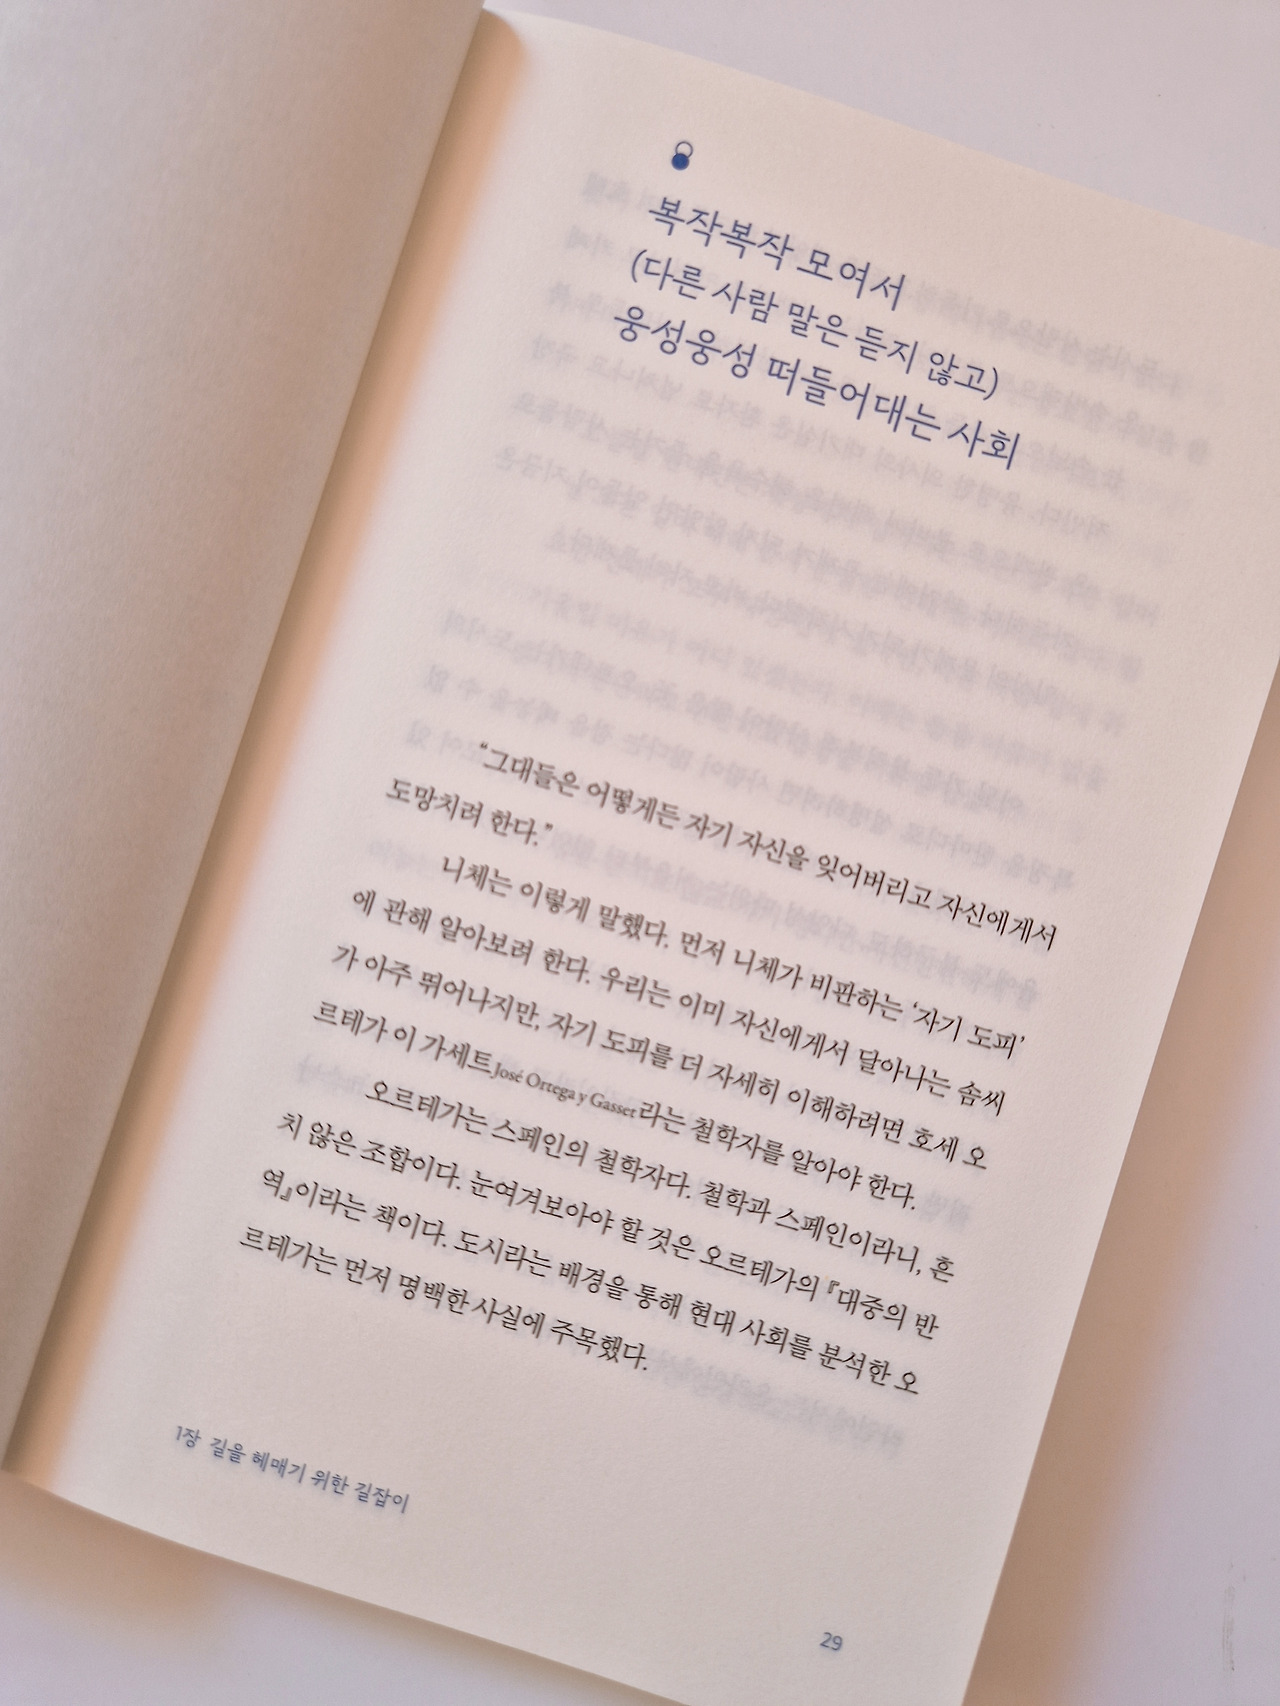 복작복작 모여서
(다른 사람 말은 듣지 않고)
웅성웅성 떠들어대는 사회
“그대들은 어떻게든 자기 자신을 잊어버리고 자신에게서
도망치려 한다.”
니체는 이렇게 말했다. 먼저 니체가 비판하는 ‘자기 도피’
에 관해 알아보려 한다. 우리는 이미 자신에게서 달아나는 솜씨
가 아주 뛰어나지만, 자기 도피를 더 자세히 이해하려면 호세 오
르테가 이 가세트José Ortega y Gasset라는 철학자를 알아야 한다.
오르테가는 스페인의 철학자다. 철학과 스페인이라니, 흔
치 않은 조합이다. 눈여겨보아야 할 것은 오르테가의 『대중의 반
역』이라는 책이다. 도시라는 배경을 통해 현대 사회를 분석한 오
르테가는 먼저 명백한 사실에 주목했다.
1장 길을 헤매기 위한 길잡이
29